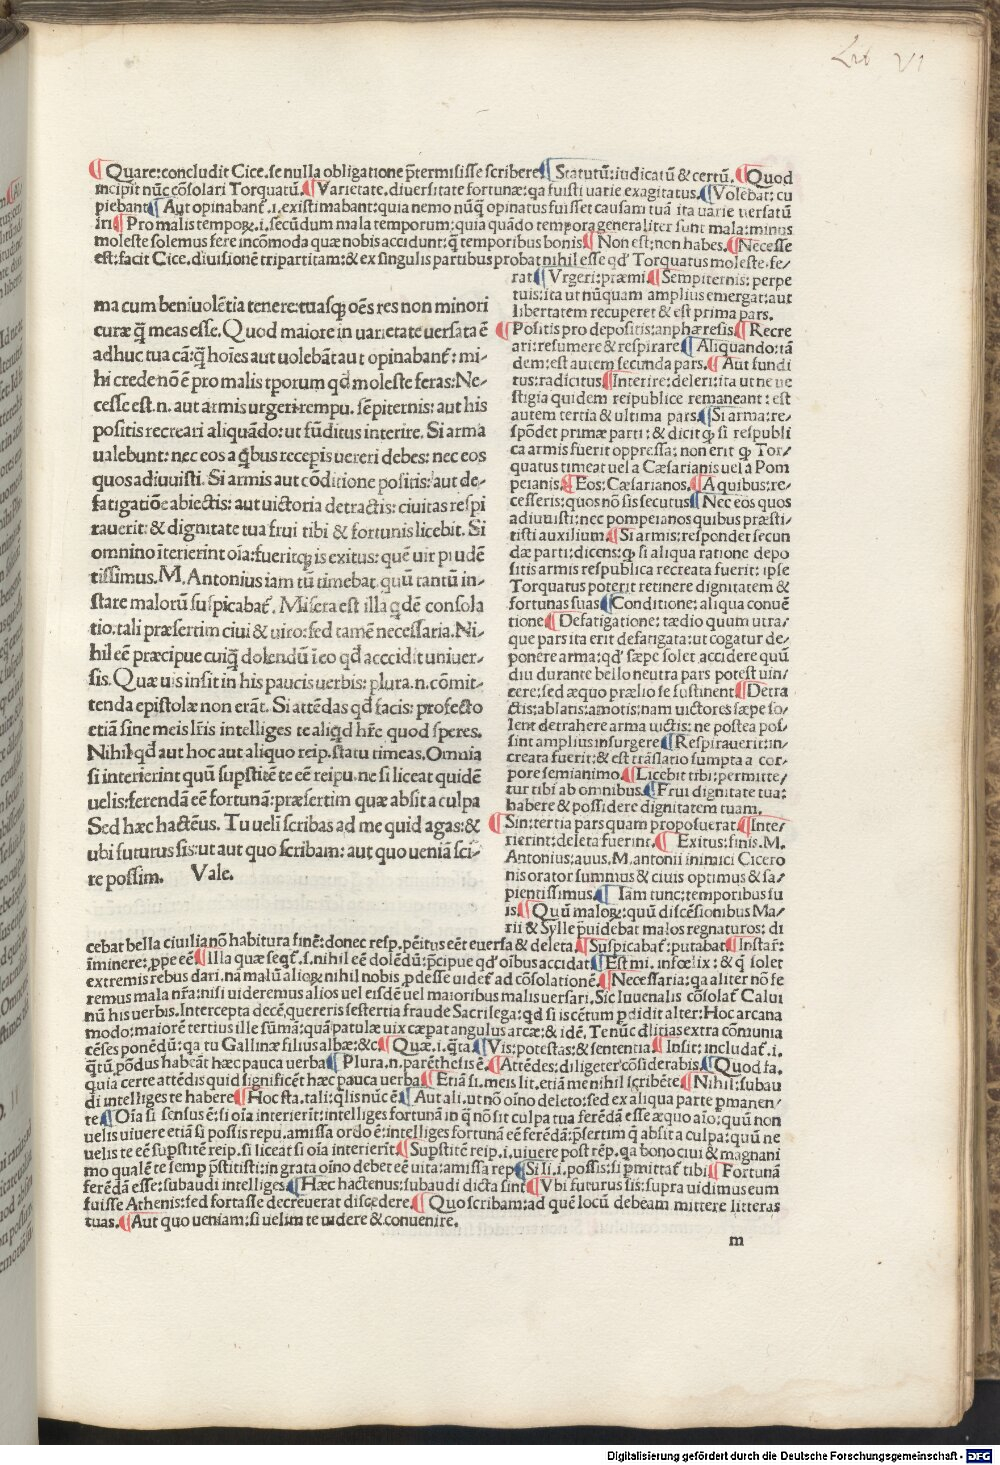 Lib VI
¶ Quare: concludit Cice. se nulla obligatione p̄termisisse scribere ¶ Statutū: iudicatū & certū. ¶ Quod
incipit nūc cōsolari Torquatū. ¶ Varietate. diuersitate fortunæ: qa fuisti uarie exagitatus. ¶ Volebāt: cu
piebant ¶ Aut opinabant̄. i. existimabant: quia nemo nūq̄ opinatus fuisset causam tuā ita uarie uersatū
iri ¶ Pro malis tempoꝝ. i. secūdum mala temporum: quia quādo tempora generaliter sunt mala: minus
moleste solemus fere incōmoda quæ nobis accidunt: q̄ temporibus bonis ¶ Non est: non habes. ¶ Necesse
est: facit Cice. diuisionē tripartitam: & ex singulis partibus probat nihil esse qd' Torquatus moleste. fe/
ma cum beniuolētia tenere: tuasqꝫ oēs res non minori
curæ q̄ meas esse. Quod maiore in uarietate uersata ē
adhuc tua cā: q̄ hoīes aut uolebāt aut opinabant̄: mi/
hi crede nō ē pro malis tporum qd moleste feras: Ne/
cesse est. n. aut armis urgeri rempu. sēpiternis: aut his
positis recreari aliquādo: ut fūditus interire. Si arma
ualebunt: nec eos a q̄bus recepis uereri debes: nec eos
quos adiuuisti. Si armis aut cōditione positis: aut de/
fatigatiōe abiectis: aut uictoria detractis: ciuitas respi
rauerit: & dignitate tua frui tibi & fortunis licebit. Si
omnino īterierint oīa: fueritqꝫ is exitus: quē uir prudē
tissimus. M. Antonius iam tū timebat. quū tantū in/
stare malorū suspicabat̄. Misera est illa qdē consola
tio. tali præsertim ciui & uiro: sed tamē necessaria. Ni/
hil eē præcipue cuiq̄ dolendū ī eo qd acccidit uniuer/
sis. Quæ uis insit in his paucis uerbis: plura. n. cōmit/
tenda epistolæ non erāt. Si attēdas qd facis: profecto
etiā sine meis lr̄is intelliges te aliqd hr̄e quod speres.
Nihil qd aut hoc aut aliquo reip. statu timeas. Omnia
si interierint quū supstitē te eē reipu. ne si liceat quidē
uelis: ferendā eē fortunā: præsertim quæ absit a culpa
Sed hæc hactēus. Tu ueli scribas ad me quid agas: &
ubi futurus sis: ut aut quo scribam: aut quo ueniā sci/
re possim. Vale.
rat ¶ Vrgeri: præmi. ¶ Sempiternis: perpe
tuis: ita ut nūquam amplius emergat: aut
libertatem recuperet & est prima pars.
¶ Positis pro depositis: anphæresis. ¶ Recre
ari: resumere & respirare. ¶ Aliquando: tā
dem: est autem secunda pars. ¶ Aut fundi
tus: radicitus ¶ Interire: deleri: ita ut ne ue
stigia quidem reipublice remaneant: est
autem tertia & ultima pars. ¶ Si arma: re/
spōdet primæ parti: & dicit qꝫ si respubli
ca armis fuerit oppressa: non erit qꝫ Tor/
quatus timeat uel a Cæsarianis uel a Pom
peianis. ¶ Eos: Cæsarianos. ¶ A quibus: re/
cesseris: quos nō sis secutus ¶ Nec eos quos
adiuuisti: nec pompeianos quibus præsti/
tisti auxilium. ¶ Si armis: responder secun
dæ parti: dicens: qꝫ si aliqua ratione depo
sitis armis respublica recreata fuerit: ipse
Torquatus poterit retinere dignitatem &
fortunas suas ¶ Conditione: aliqua conuē
tione ¶ Defatigatione: tædio quum utra/
que pars ita erit defatigata: ut cogatur de/
ponere arma: qd' sæpe solet accidere quū
diu durante bello neutra pars potest uin/
cere: sed æquo prælio se sustinent ¶ Detra
ctis: ablatis: amotis: nam uictores sæpe so/
lent detrahere arma uictis: ne postea pos/
sint amplius insurgere ¶ Respirauerit: in/
creata fuerit: & est trāslatio sumpta a cor/
pore semianimo. ¶ Licebit tibi: permitte/
tur tibi ab omnibus. ¶ Frui dignitate tua:
habere & possidere dignitatem tuam.
¶ Sin: tertia pars quam proposuerat. ¶ Inte/
rierint: deleta fuerint. ¶ Exitus: finis. M.
Antonius: auus. M. antonii inimici Cicero
nis orator summus & ciuis optimus & sa/
pientissimus. ¶ Iam tunc: temporibus su
is ¶ Quū maloꝝ: quū discēsionibus Ma/
rii & Sylle p̄uidebat malos regnaturos: di
cebat bella ciuilia nō habitura finē: donec resp. pēitus eēt euersa & deleta. ¶ Suspicabat̄: putabat ¶ Instar̄:
īminere: ppe eē ¶ Illa quæ seqt̄. s. nihil eē dolēdū: p̄cipue qd' oībus accidat ¶ Est mi. infœlix: & q̄ solet
extremis rebus dari. na malū alioꝝ nihil nobis pdesse uidet̄ ad cōsolationē. ¶ Necessaria: qa aliter nō fe
remus mala nr̄a: nisi uideremus alios uel eisdē uel maioribus malis uersari. Sic Iuuenalis cōsolat̄ Calui
nū his uerbis. Intercepta decē. quereris sestertia fraude Sacrilega: qd si iscētum pdidit alter: Hoc arcana
modo: maiorē tertius ille sūmā: quā patulæ uix cæpat angulus arcæ: & idē. Te nūc dlitias extra cōmunia
cēses ponēdū: qa tu Gallinæ filius albæ: &c ¶ Quæ. i. q̄ta ¶ Vis: potestas: & sententia ¶ Insit: includat̄. i.
q̄tū pōdus habeāt hæc pauca uerba ¶ Plura. n. parēthesis ē. ¶ Attēdes: diligeter cōsiderabis. ¶ Quod fa.
quia certe attēdis quid significēt hæc pauca uerba ¶ Etiā si. meis lit. etiā me nihil scribēte ¶ Nihil: subau
di intelliges te habere ¶ Hoc sta. tali: q̄lis nūc ē ¶ Aut ali. ut nō oīno deleto: sed ex aliqua parte pmanen/
te ¶ Oīa si sensus ē: si oīa interierīt: intelliges fortunā in q̄ nō sit culpa tua ferēdā esse æquo aīo: quū non
uelis uiuere etiā si possis repu. amissa ordo ē: intelliges fortunā eē ferēdā: p̄sertim q̄ absit a culpa: quū ne
uelis te eē supstitē reip. si liceat si oīa interierīt ¶ Supstitē reip. i. uiuere post rēp. qa bono ciui & magnani
mo qualē te semp p̄stitisti: in grata oīno debet eē uita: amissa rep ¶ Si li. i. possis: si pmittat̄ tibi ¶ Fortunā
ferēdā esse: subaudi intelliges ¶ Hæc hactenus: subaudi dicta sint ¶ Vbi futurus sis: supra uidimus eum
fuisse Athenis: sed fortasse decreuerat discedere. ¶ Quo scribam: ad quē locū debeam mittere litteras
tuas. ¶ Aut quo ueniam: si uelim te uidere & conuenire.
m
Digitalisierung gefördert durch die Deutsche Forschungsgemeinschaft - DFG